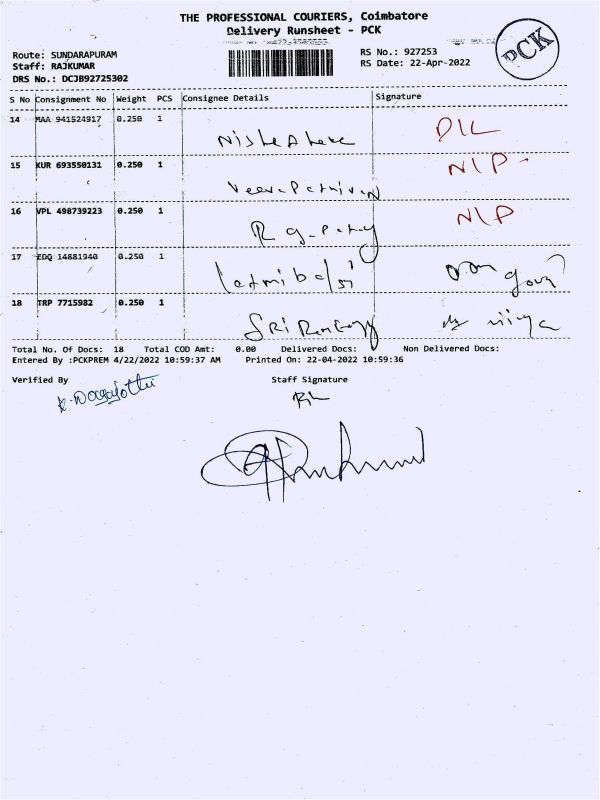 THE PROFESSIONAL COURIERS, Coimbatore
Delivery Runsheet - PCK
PCK
Route: SUNDARAPURAM
Staff: RAJKUMAR
DRS No.: DCJB92725302
RS No.: 927253
RS Date: 22-Apr-2022
S No Consignment No Weight PCS Consignee Details Signature
14 MAA 941524917 0.250 1
DIL
15 KUR 693550131 0.250 1 NIP
16 VPL 498739223 0.250 1 NIP
17 EDQ 14881940 0.250 1
18 TRP 7715982 0.250 1
Total No. Of Docs: 18 Total COD Amt: 0.00 Delivered Docs: Non Delivered Docs:
Entered By :PCKPREM 4/22/2022 10:59:37 AM Printed On: 22-04-2022 10:59:36
Verified By Staff Signature